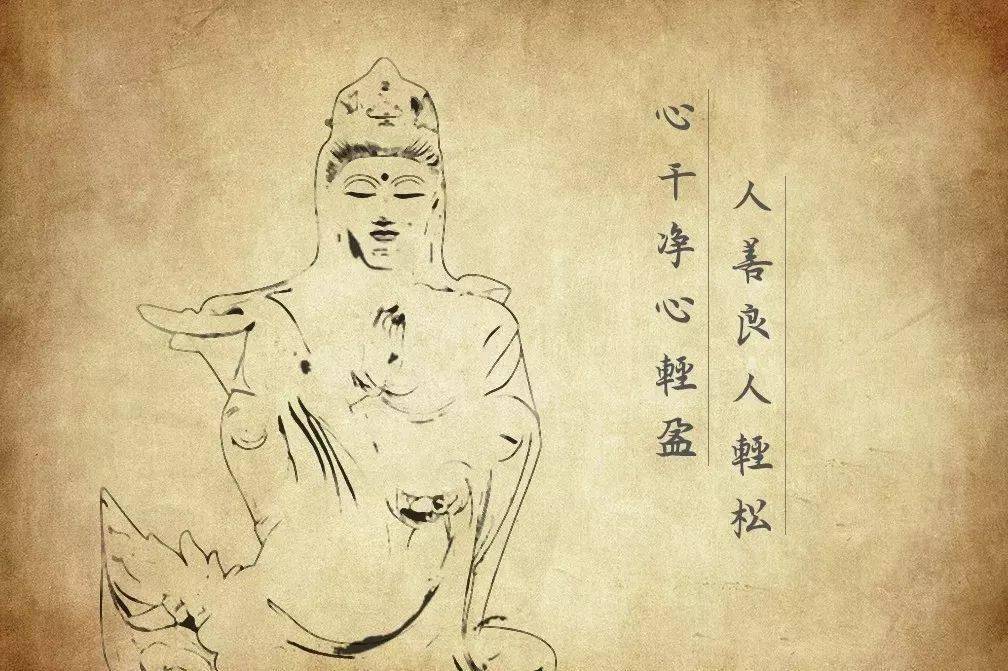 人善良人輕松
心干净心輕盈